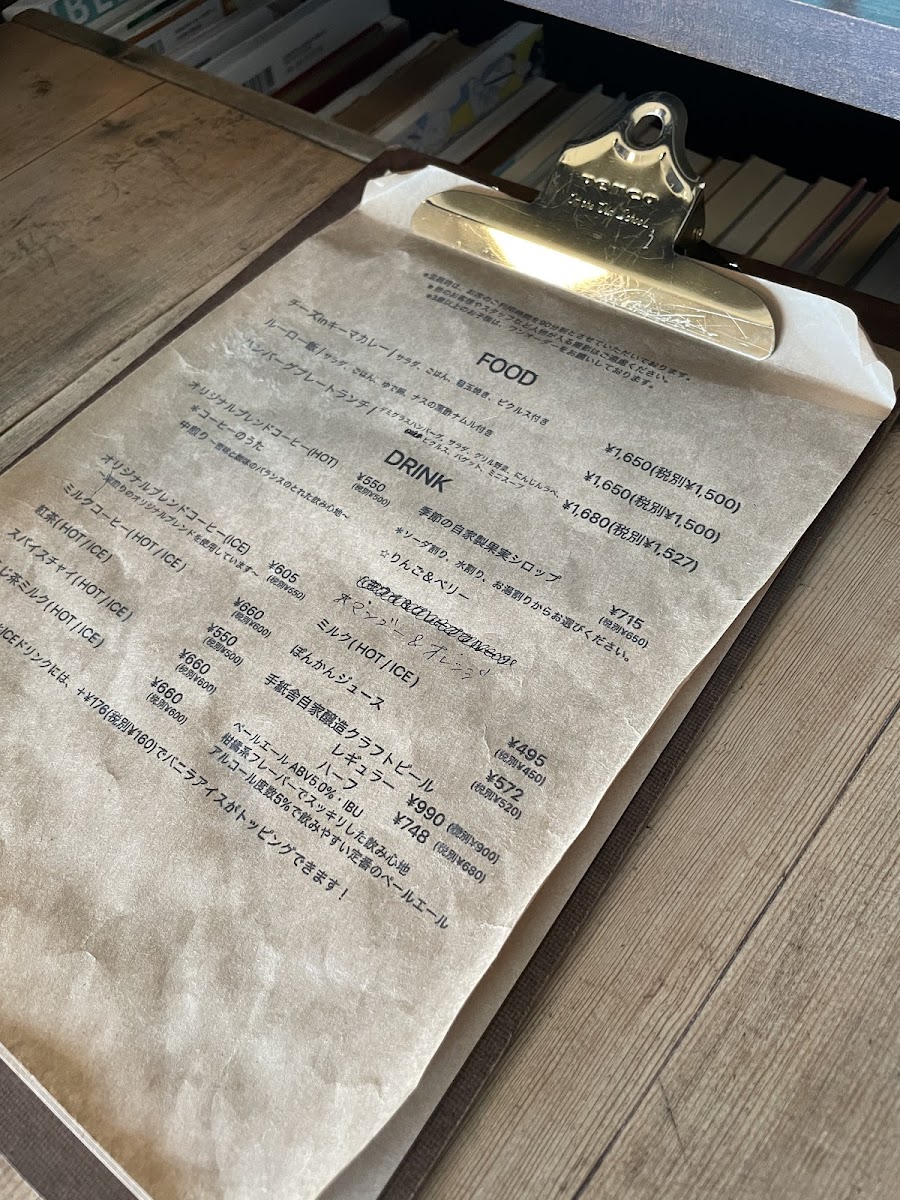 PENCO
In the Old School
*混雑時は、お席のご利用時間を90分制とさせていただいております。
*他のお客様やスタッフなど人物が入る撮影はご遠慮ください。
*3歳以上のお子様は、ワンオーダーをお願いしております。
FOOD
チーズinキーマカレー / サラダ、ごはん、目玉焼き、ピクルス付き ¥1,650(税別¥1,500)
ルーロー飯 / サラダ、ごはん、ゆで卵、ナスの黒酢ナムル付き ¥1,650(税別¥1,500)
ハンバーグプレートランチ / デミグラスハンバーグ、サラダ、グリル野菜、にんじんラペ、
ピクルス、バゲット、ミニスープ ¥1,680(税別¥1,527)
DRINK
オリジナルブレンドコーヒー(HOT) ¥550
(税別¥500)
*コーヒーのうた
中煎り〜苦味と酸味のバランスのとれた飲み心地〜
オリジナルブレンドコーヒー(ICE) ¥605
(税別¥550)
〜深煎りのオリジナルブレンドを使用しています〜
ミルクコーヒー(HOT/ICE) ¥660
(税別¥600)
紅茶(HOT/ICE) ¥550
(税別¥500)
スパイスチャイ(HOT/ICE) ¥660
(税別¥600)
じ茶ミルク(HOT/ICE) ¥660
(税別¥600)
ICEドリンクには、+¥176(税別¥160)でバニラアイスがトッピングできます!
季節の自家製果実シロップ ¥715
(税別¥650)
*ソーダ割り、水割り、お湯割りからお選びください。
☆りんご&ベリー
マンゴー&オレンジ
ミルク(HOT/ICE) ¥495
(税別¥450)
ぽんかんジュース ¥572
(税別¥520)
手紙舎自家醸造クラフトビール
レギュラー ¥990 (税別¥900)
ハーフ ¥748 (税別¥680)
ペールエール ABV5.0%・IBU
柑橘系フレーバーでスッキリした飲み心地
アルコール度数5%で飲みやすい定番のペールエール